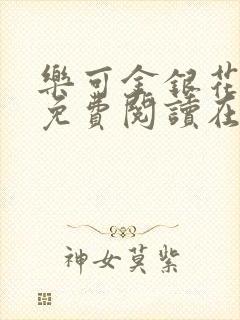 樂可金銀花
免費閱讀在
神女莫紫